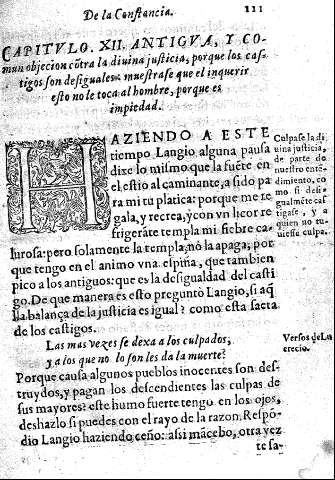 De la Constancia. 111
CAPITVLO. XII. ANTIGVA, Y CO-
mun objecion cõtra la diuina justicia, porque los cas-
tigos son desiguales: muestrase que el inquerir
esto no le toca al hombre, porque es
impiedad.
HAZIENDO A ESTE
tiempo Langio alguna pausa
dixe lo mismo que la fuẽte en
el estio al caminante, a sido pa
ra mi tu platica: porque me re
gala, y recrea, y con vn licor re
frigerãte templa mi fiebre ca-
lurosa: pero solamente la templa, no la apaga; por
que tengo en el animo vna espina, que tambien
pico a los antiguos: que es la desigualdad del casti
go. De que manera es esto preguntò Langio, si aq̃
lla balança de la justicia es igual? como esta sacta
de los castigos.
Las mas vezes se dexa a los culpados,
y a los que no lo son les da la muerte?
Porque causa algunos pueblos inocentes son des-
truydos, y pagan los descendientes las culpas de
sus mayores? este humo fuerte tengo en los ojos,
deshazlo si puedes con el rayo de la razon. Respõ-
dio Langio haziendo ceño: asi mãcebo, otra vez
te sa-
Culpase la di
uina justicia,
de parte do
nuestro entẽ-
dimiento, co
mo si desi
gualmẽte cas
tigase, y a
quien no tu-
uiesse culpa.
Versos de Lu
crecio.